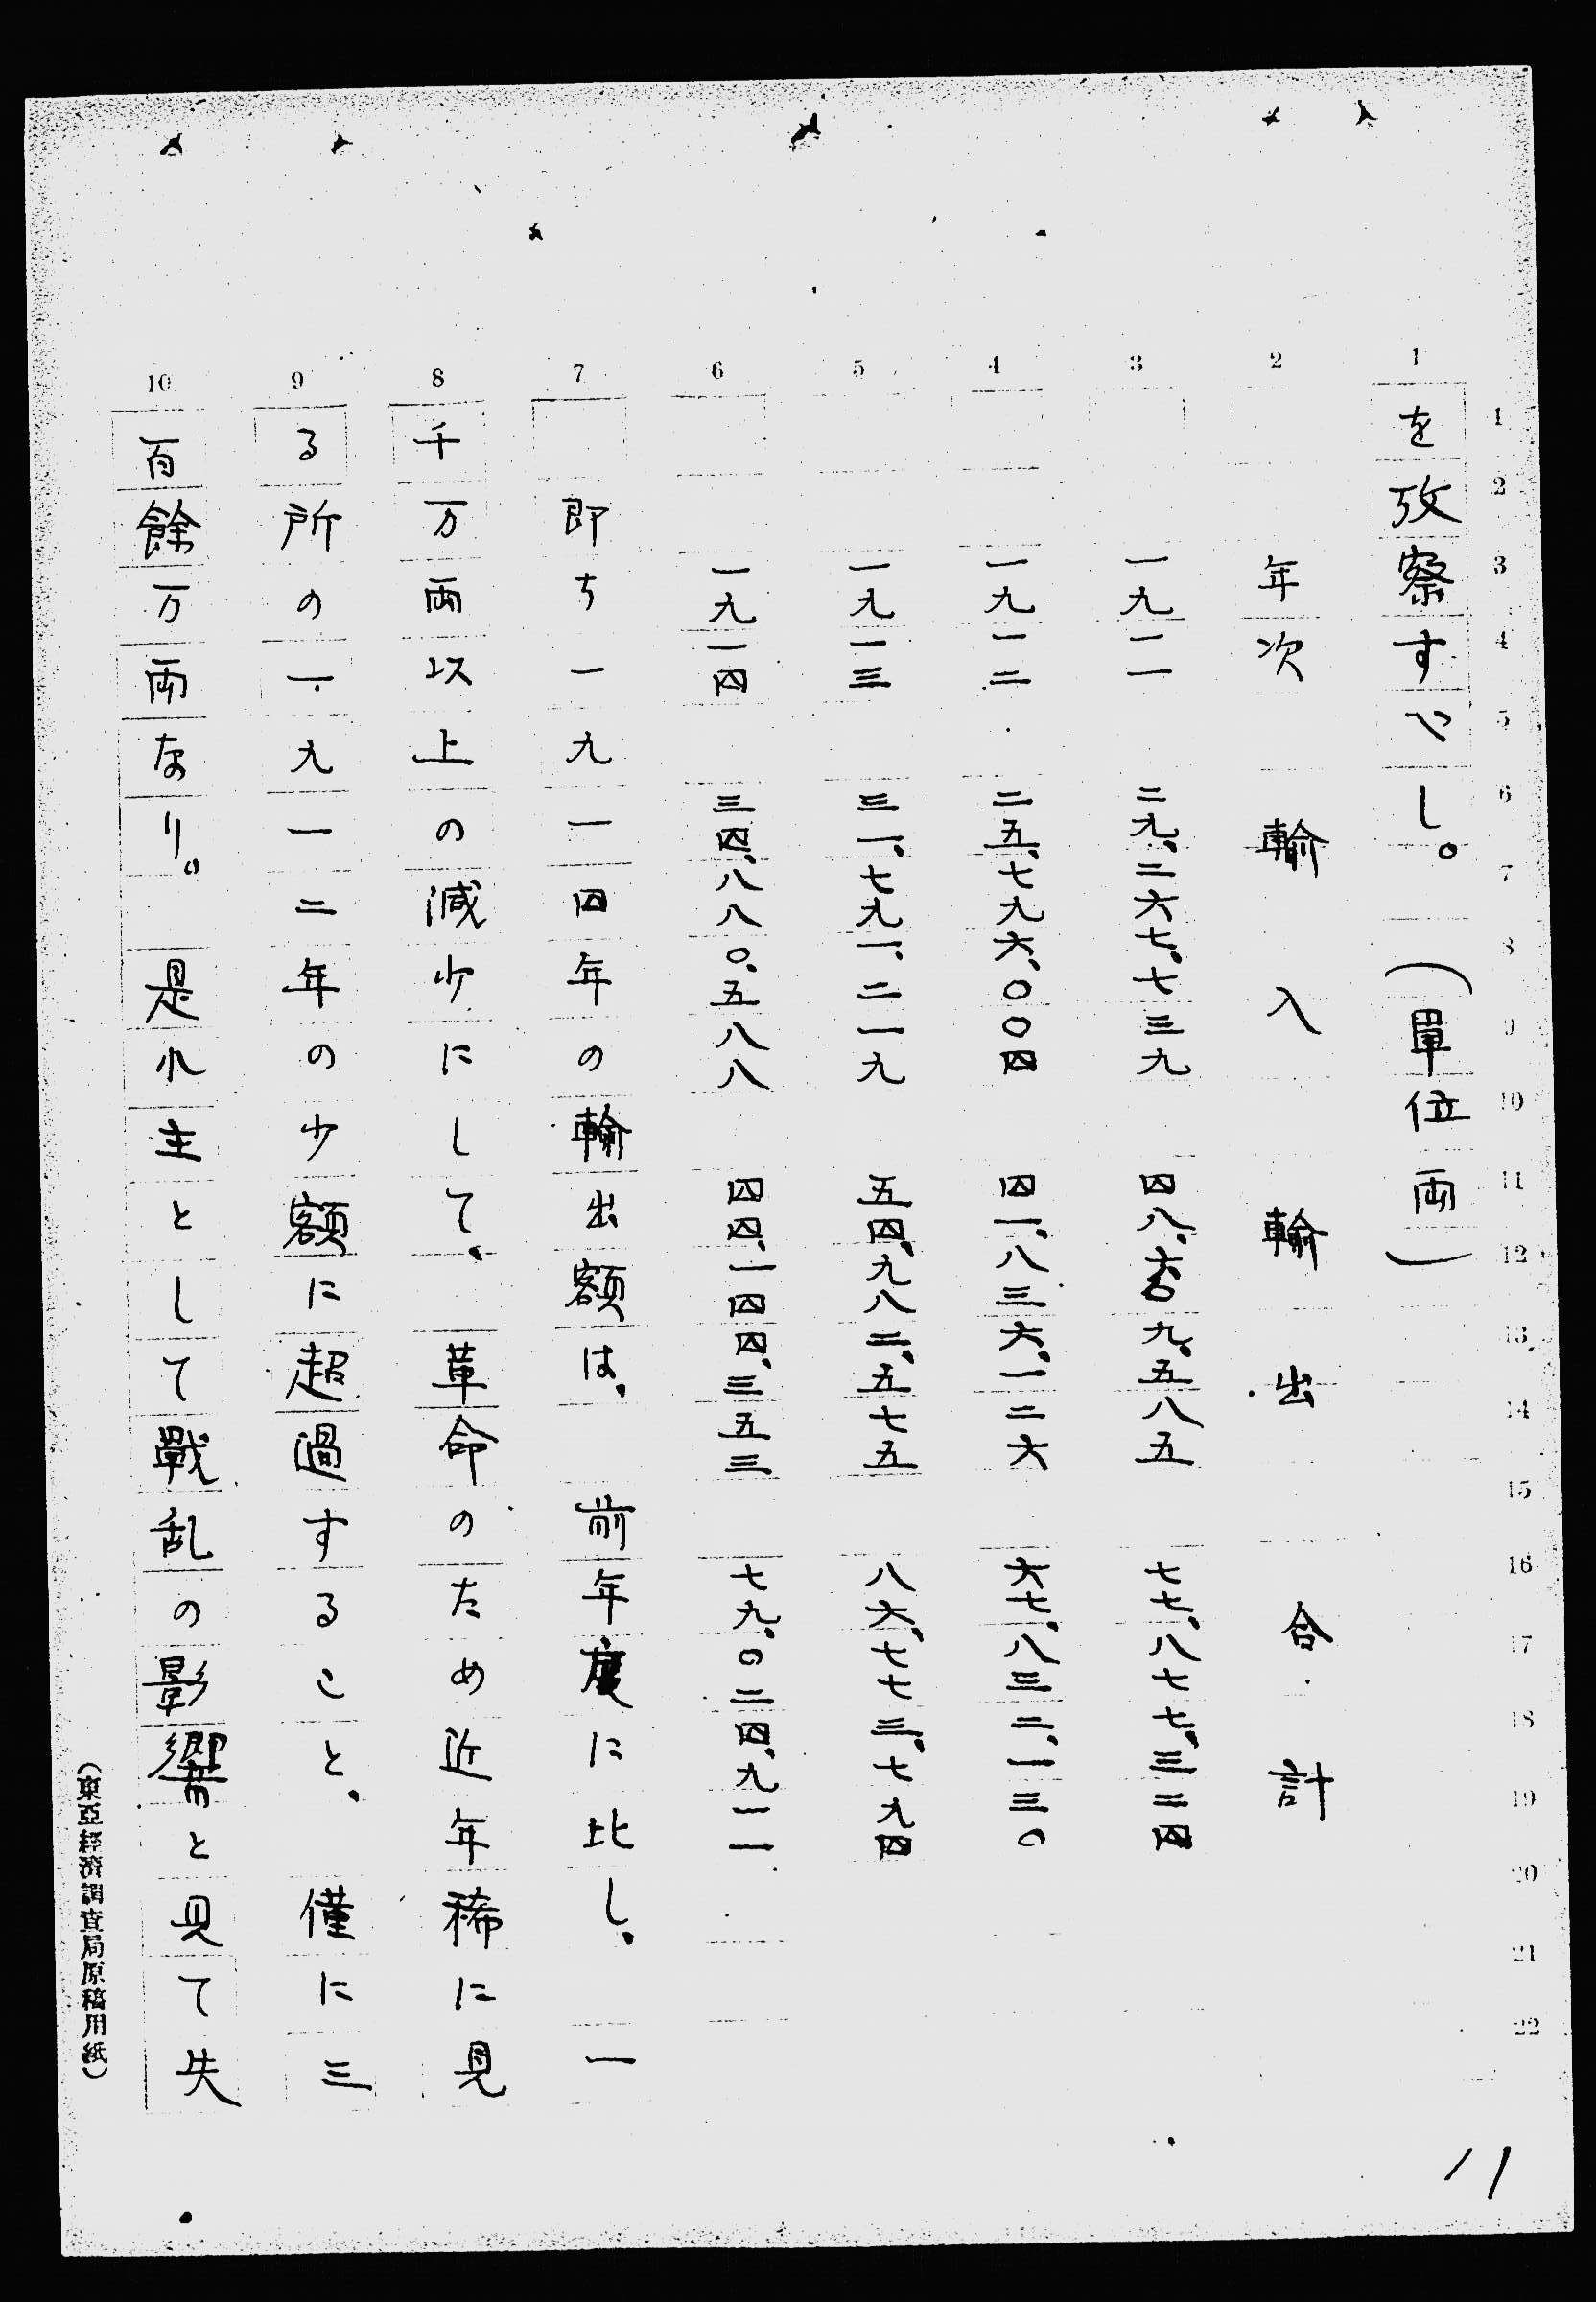 1 2 3 4 5 6 7 8 9 10
1 2 3 4 5 6 7 8 9 10 11 12 13 14 15 16 17 18 19 20 21 22
を攷察すべし。　（單位両）
年次　輸入　輸出　合計
一九一一　二九、二六七、七三九　四八、六〇九、五八五　七七、八七七、三二四
一九一二　二五、七九六、〇〇四　四一、八三六、一二六　六七、八三二、一三〇
一九一三　三一、七九一、二一九　五四、九八二、五七五　八六、七七三、七九四
一九一四　三四、八八〇、五八八　四四、一四四、三五三　七九、〇二四、九一一
即ち一九一四年の輸出額は、前年度に比し、一
千万両以上の減少にして、革命のため近年稀に見
る所の一九一二年の少額に超過すること、僅に三
百餘万両なり。是れ主として戰乱の影響と見て失
（東亞經濟調査局原稿用紙）
11